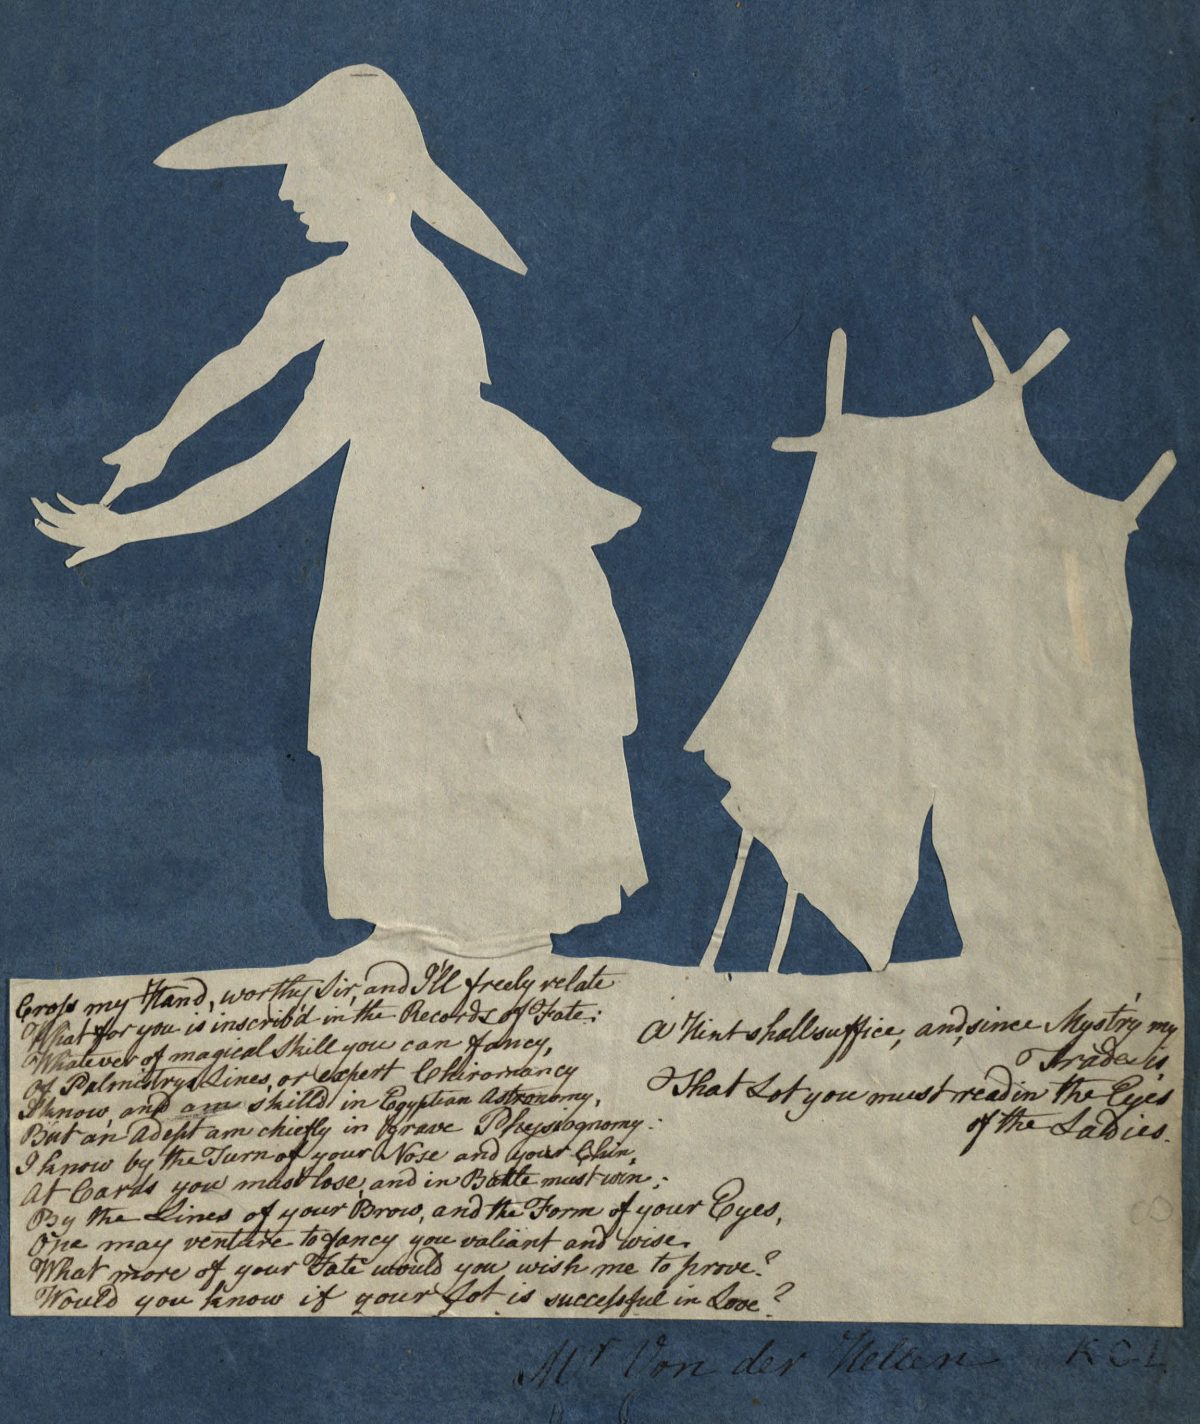 Cross my Hand, worthy Sir, and I'll freely relate
What for you is inscrib'd in the Records of Fate:
Whatever of magical skill you can fancy,
Of Palmistry's Lines, or expert Chiromancy
I know, and am skill'd in Egyptian Astronomy,
But an Adept am chiefly in grave Physiognomy:
I know by the Turn of your Nose and your Chin,
At Cards you must lose, and in Battle must win;
By the Lines of your Brow, and the Form of your Eyes,
One may venture to fancy you valiant and wise.
What more of your Fate would you wish me to prove?
Would you know if your Lot is successful in Love?
A Hint shall suffice, and, since Myst'ry my
Trade is,
That Lot you must read in the Eyes
of the Ladies.
Mr Von der Hellen K G L